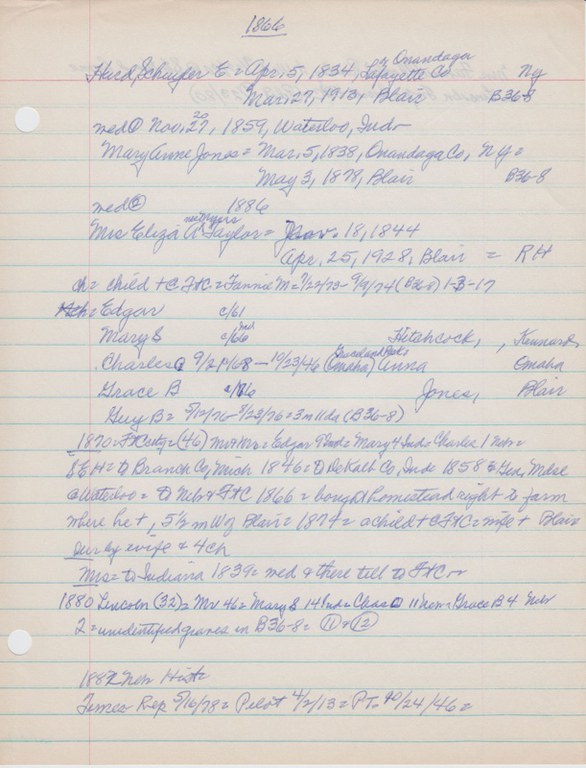 1866
Hurd, Schuyler E. = Apr. 5, 1834, Lafayette Co or Onandaga Ny
Mar. 27, 1913, Blair B36-8
med① Nov. 27, 20 1859, Waterloo, Ind-
Mary Anne Jones = Mar. 5, 1838, Onandaga Co, Ny =
May 3, 1878, Blair B36-8
med② 1886
Mrs Eliza A. Taylor = Nov. 18, 1844
Apr. 25, 1928, Blair = RH
ch = child + C Ft C = Fannie M = 9/9/74 (B36-8) 1-3-17
ch = Edgar c/61
Mary E c/66 Ind Hitchcock, , Kennard
Charles 9/2/68 - 10/23/46 (Omaha) Anna Omaha
Grace B c/76 Jones, Blair
Guy B = 5/12/76 - 8/23/76 = 3m 11da (B36-8)
1870 = Ft C city = (46) Mr & Mrs = Edgar 9 Ind = Mary 4 Ind = Charles 1 Nebr =
S E H = to Branch Co, Mich 1846 = to DeKalb Co, Ind 1858 & Gen. Mdse
@ Waterloo = to Nebr & Ft C 1866 = bought homestead right to farm
where he +, 5½ m W of Blair = 1874 = a child + C Ft C = wife + Blair
Sur by wife & 4 ch
Mrs = to Indiana 1839 = med & there till to Ft C =
1880 Lincoln (32) = Mr 46 = Mary E 14 Ind = Chas 11 Nebr = Grace B 4 Nebr
2 = unidentified graves in B36-8 = ⑪ & ⑫
1882 Nebr Hist =
Times Rep 5/16/78 = Pilot 4/2/13 = P T = 10/24/46 =